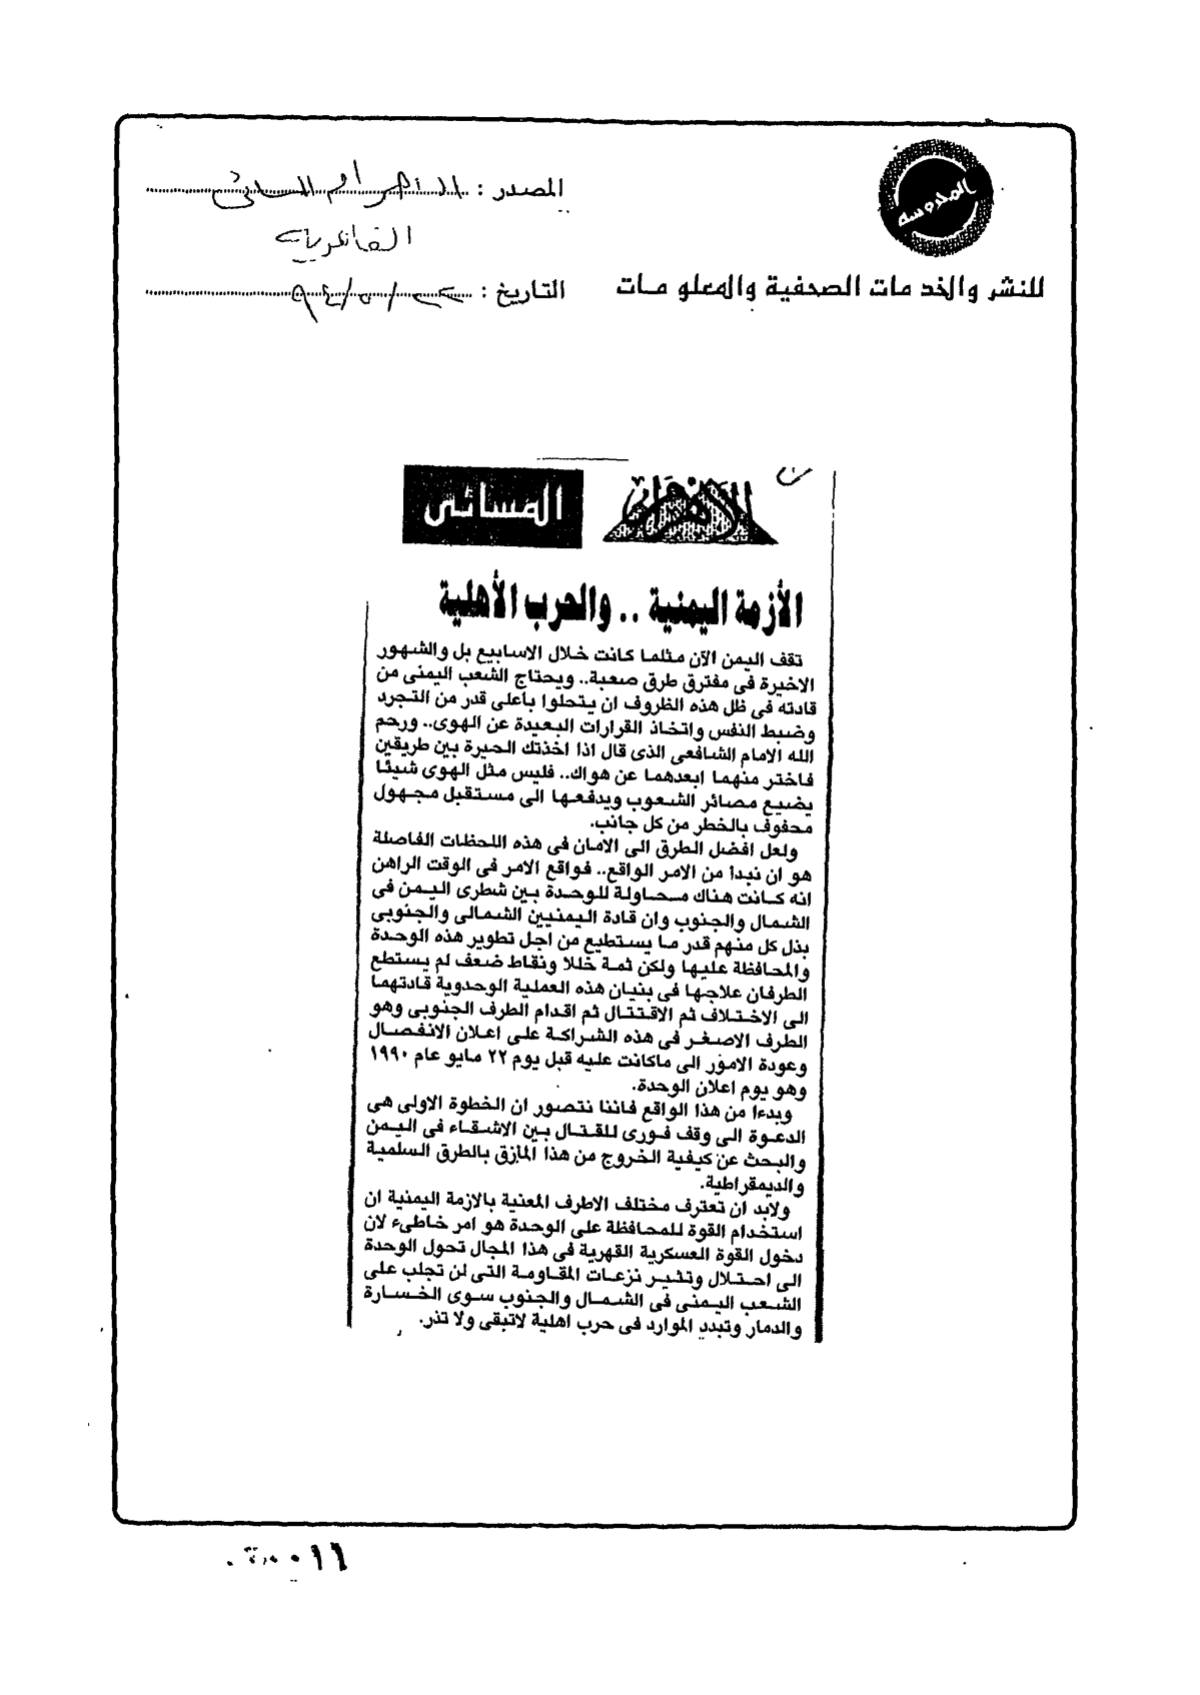 المحروسه
للنشر والخدمات الصحفية والمعلومات
المصدر : الأهرام المسائى
القاهرية
التاريخ : ٩٤/٥/٢٢
الأهرام المسائى
الأزمة اليمنية .. والحرب الأهلية
تقف اليمن الآن مثلما كانت خلال الاسابيع بل والشهور
الاخيرة فى مفترق طرق صعبة.. ويحتاج الشعب اليمنى من
قادته فى ظل هذه الظروف ان يتحلوا بأعلى قدر من التجرد
وضبط النفس واتخاذ القرارات البعيدة عن الهوى.. ورحم
الله الامام الشافعى الذى قال اذا اخذتك الحيرة بين طريقين
فاختر منهما ابعدهما عن هواك.. فليس مثل الهوى شيئا
يضيع مصائر الشعوب ويدفعها الى مستقبل مجهول
محفوف بالخطر من كل جانب.
ولعل افضل الطرق الى الامان فى هذه اللحظات الفاصلة
هو ان نبدا من الامر الواقع.. فواقع الامر فى الوقت الراهن
انه كانت هناك محاولة للوحدة بين شطرى اليمن فى
الشمال والجنوب وان قادة اليمنيين الشمالى والجنوبى
بذل كل منهم قدر ما يستطيع من اجل تطوير هذه الوحدة
والمحافظة عليها ولكن ثمة خللا ونقاط ضعف لم يستطع
الطرفان علاجها فى بنيان هذه العملية الوحدوية قادتهما
الى الاختلاف ثم الاقتتال ثم اقدام الطرف الجنوبى وهو
الطرف الاصغر فى هذه الشراكة على اعلان الانفصال
وعودة الامور الى ماكانت عليه قبل يوم ٢٢ مايو عام ١٩٩٠
وهو يوم اعلان الوحدة.
وبدءا من هذا الواقع فاننا نتصور ان الخطوة الاولى هى
الدعوة الى وقف فورى للقتال بين الاشقاء فى اليمن
والبحث عن كيفية الخروج من هذا المازق بالطرق السلمية
والديمقراطية.
ولابد ان تعترف مختلف الاطرف المعنية بالازمة اليمنية ان
استخدام القوة للمحافظة على الوحدة هو امر خاطىء لان
دخول القوة العسكرية القهرية فى هذا المجال تحول الوحدة
الى احتلال وتثير نزعات المقاومة التى لن تجلب على
الشعب اليمنى فى الشمال والجنوب سوى الخسارة
والدمار وتبدد الموارد فى حرب اهلية لاتبقى ولا تذر.